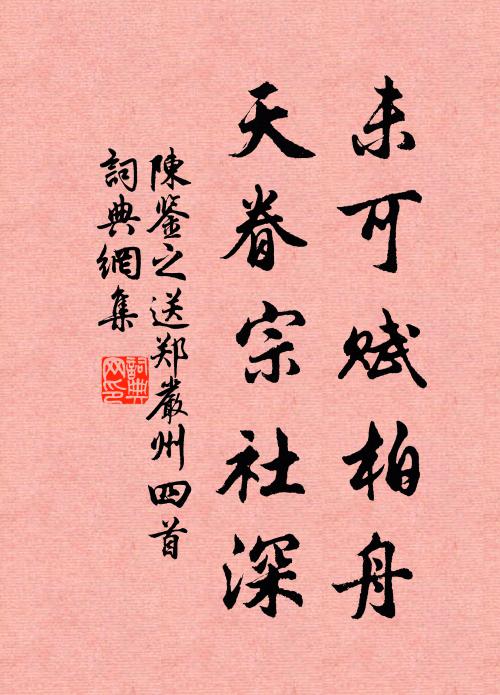 未可赋柏舟
天眷宗社深
陳鉴之送郑嚴州四首
詞典網集
詞典網印